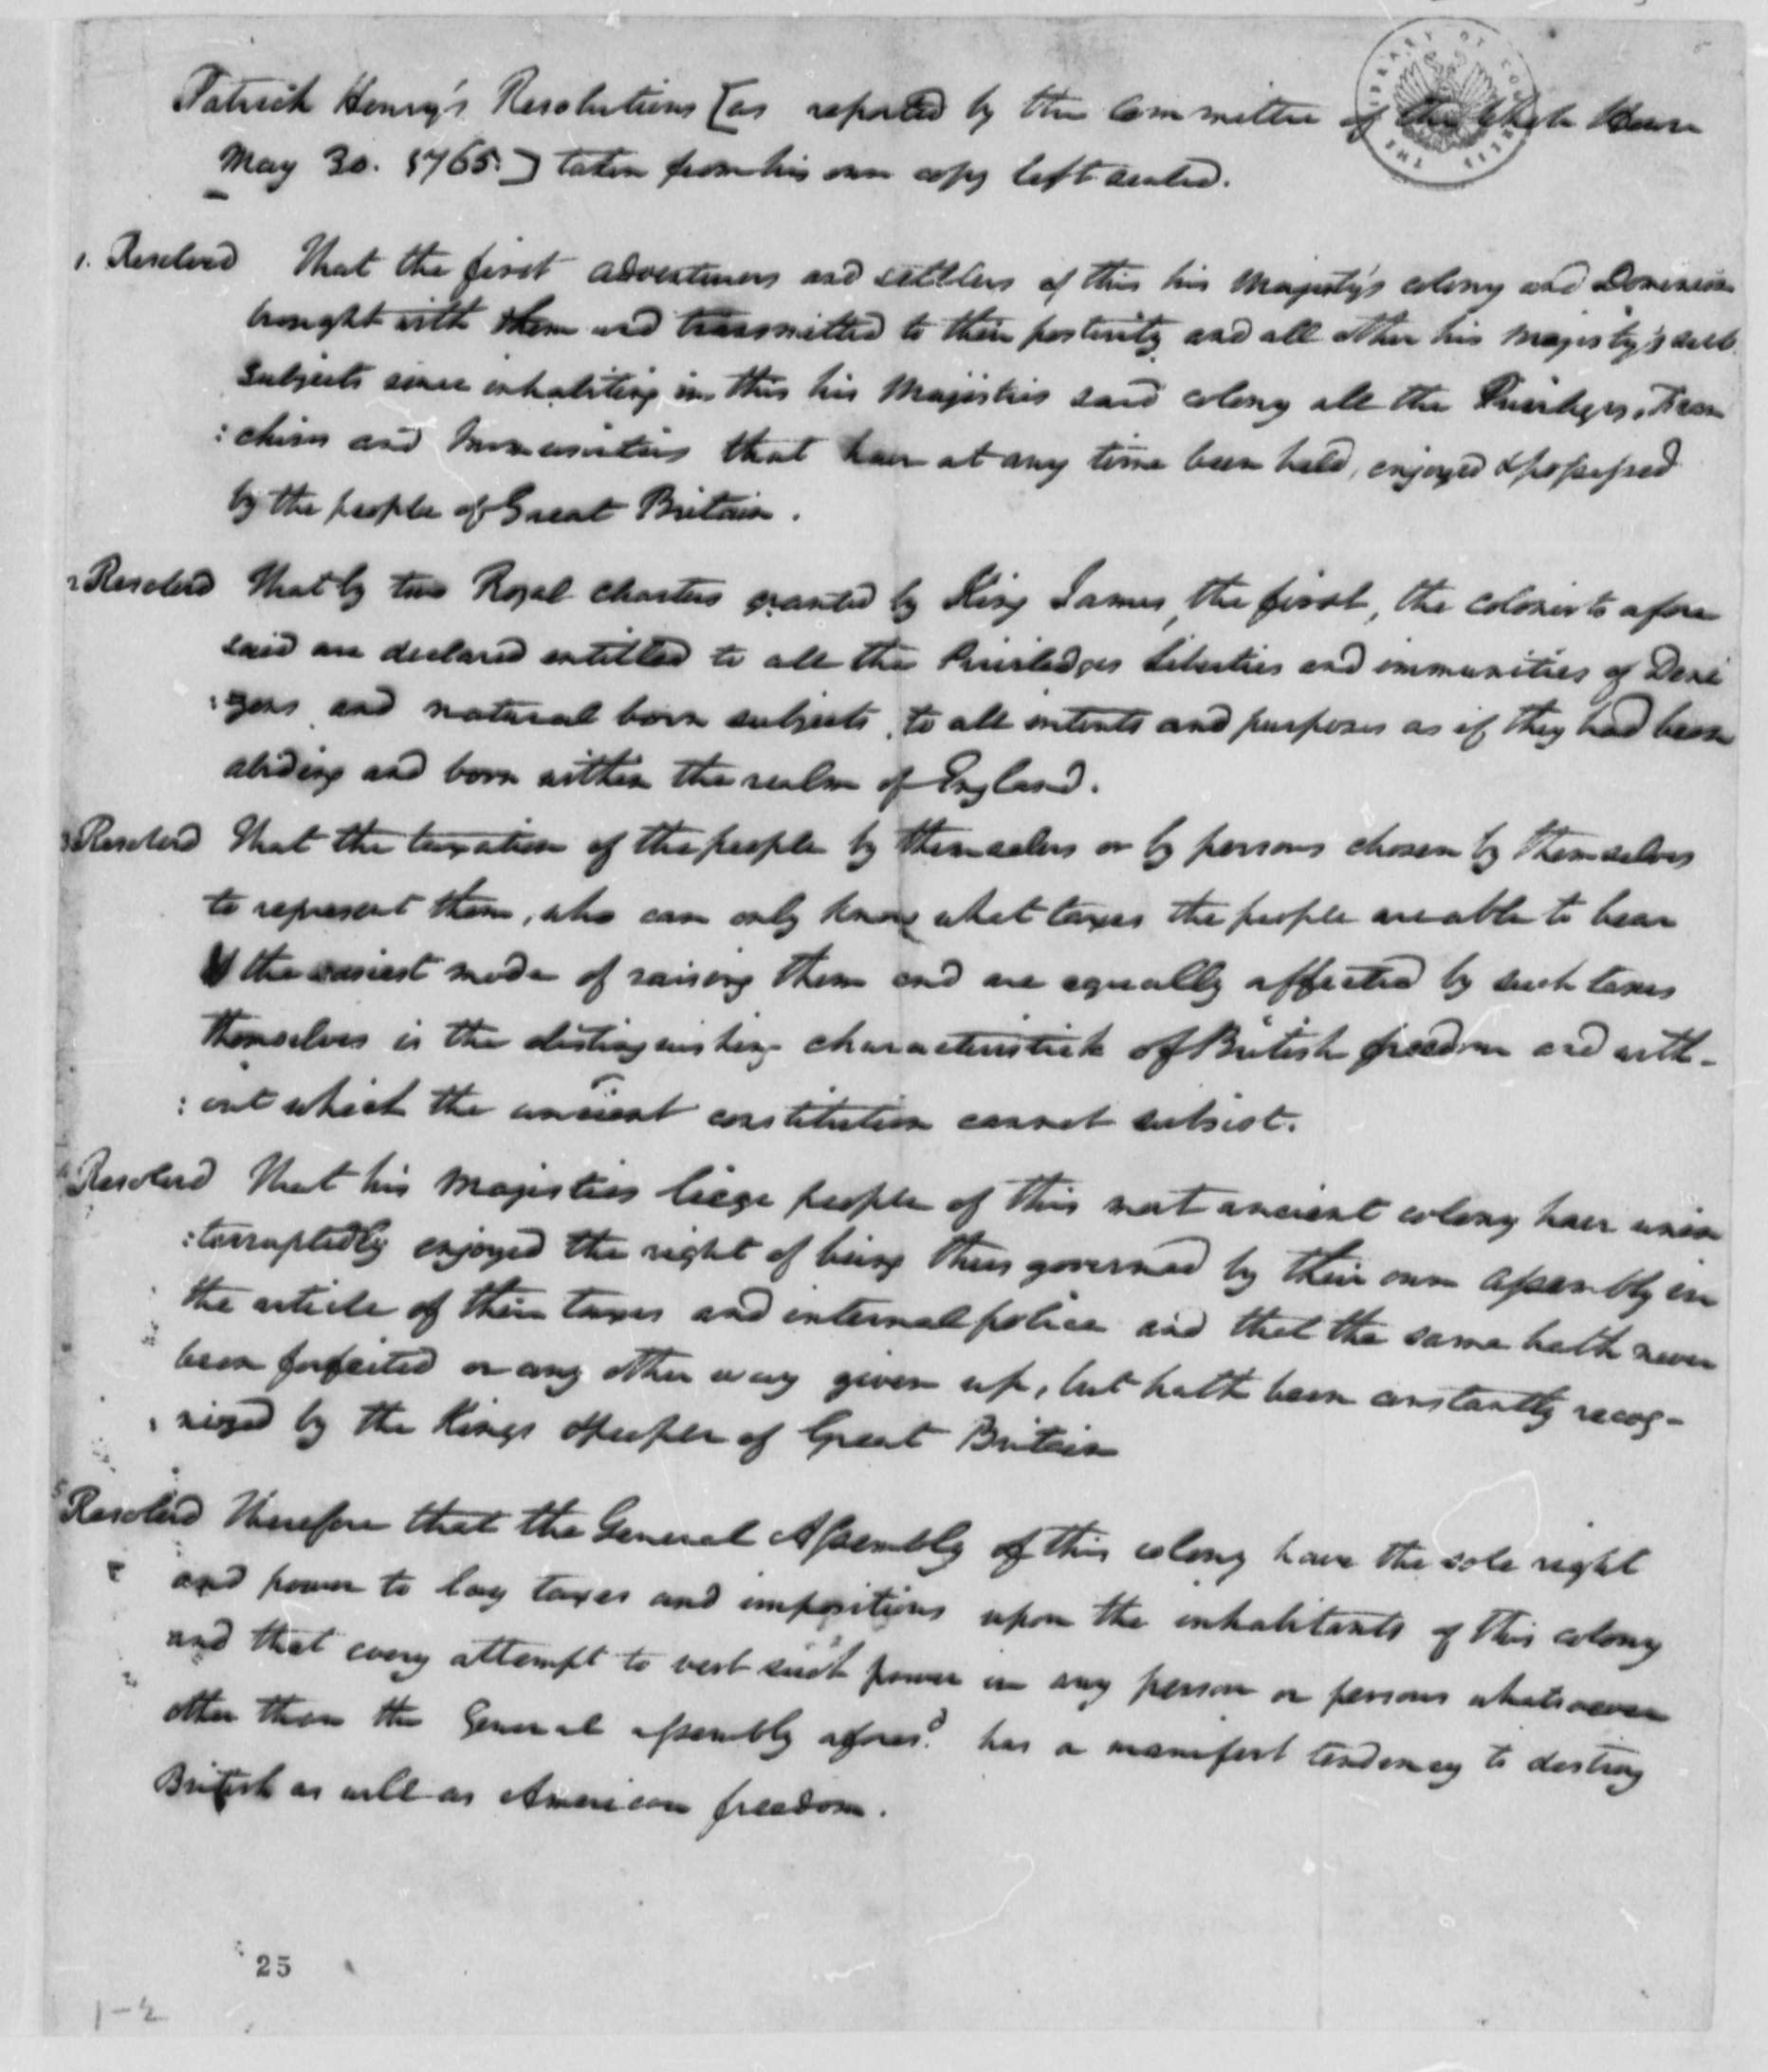 Patrick Henry's Resolutions [as reported by the Committee of the Whole House
May 30. 1765.] taken from his own copy left sealed.
1. Resolved That the first adventurers and settlers of this his Majesty's colony and Dominion
brought with them and transmitted to their posterity and all other his Majesty's
Subjects since inhabiting in this his Majisties said colony all the Priviliges, Fran
:chises and Immunities that have at any time been held, enjoyed & possessed
by the people of Great Britain.
2 Resolved That by two Royal charters granted by King James, the first, the colonists afore
said are declared entitled to all the Priviledges Liberties and immunities of Deni
:zens and natural born subjects, to all intents and purposes as if they had been
abiding and born within the realm of England.
3 Resolved That the taxation of the people by themselves or by persons chosen by themselves
to represent them, who can only know what taxes the people are able to bear
the easiest mode of raising them and are equally affected by such taxes
themselves is the distinguishing characteristick of British freedom and with-
:out which the ancient constitution cannot subsist.
4 Resolved That his Majisties liege people of this most ancient colony have unin
:terruptedly enjoyed the right of being thus governed by their own assembly in
the article of their taxes and internal police and that the same hath never
been forfeited or any other way given up, but hath been constantly recog-
nized by the Kings & people of Great Britain
5 Resolved Therefore that the General Assembly of this colony have the sole right
and power to lay taxes and impositions upon the inhabitants of this colony
and that every attempt to vest such power in any person or persons whatsoever
other than the General assembly afores.d has a manifest tendency to destroy
British as well as American freedom.
25
1-2